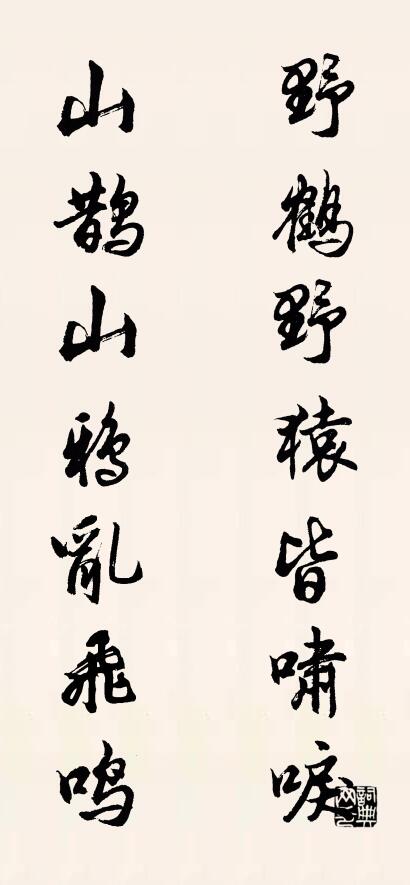 野鹤野猿皆啸唳
山鹊山鸦亂飛鸣
詞典网